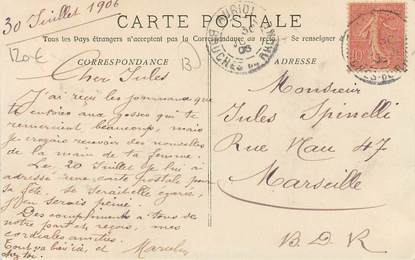 30 Juillet 1906
CARTE POSTALE
Tous les Pays étrangers n'acceptent pas la Correspondance au recto. Se renseigner à
CORRESPONDANCE
ADRESSE
120€
B
Cher Jules
J'ai reçu les pommades que
tu envoies aux gosses qui te
remercient beaucoup, mais
je croyais recevoir des nouvelles
de la main de ta femme.
Le 20 Juillet je lui ai
adressé une carte postale pour
sa fête, se serait elle égarée
j'en serais peiné
Des compliments à tous de
notre part et reçois, mes
cordiales amitiés.
Tout va bien ici, et
chez toi.
Marcelin
Monsieur
Jules Spinelli
Rue Nau 47
Marseille
B. D. R
BOUCHES DU RHONE